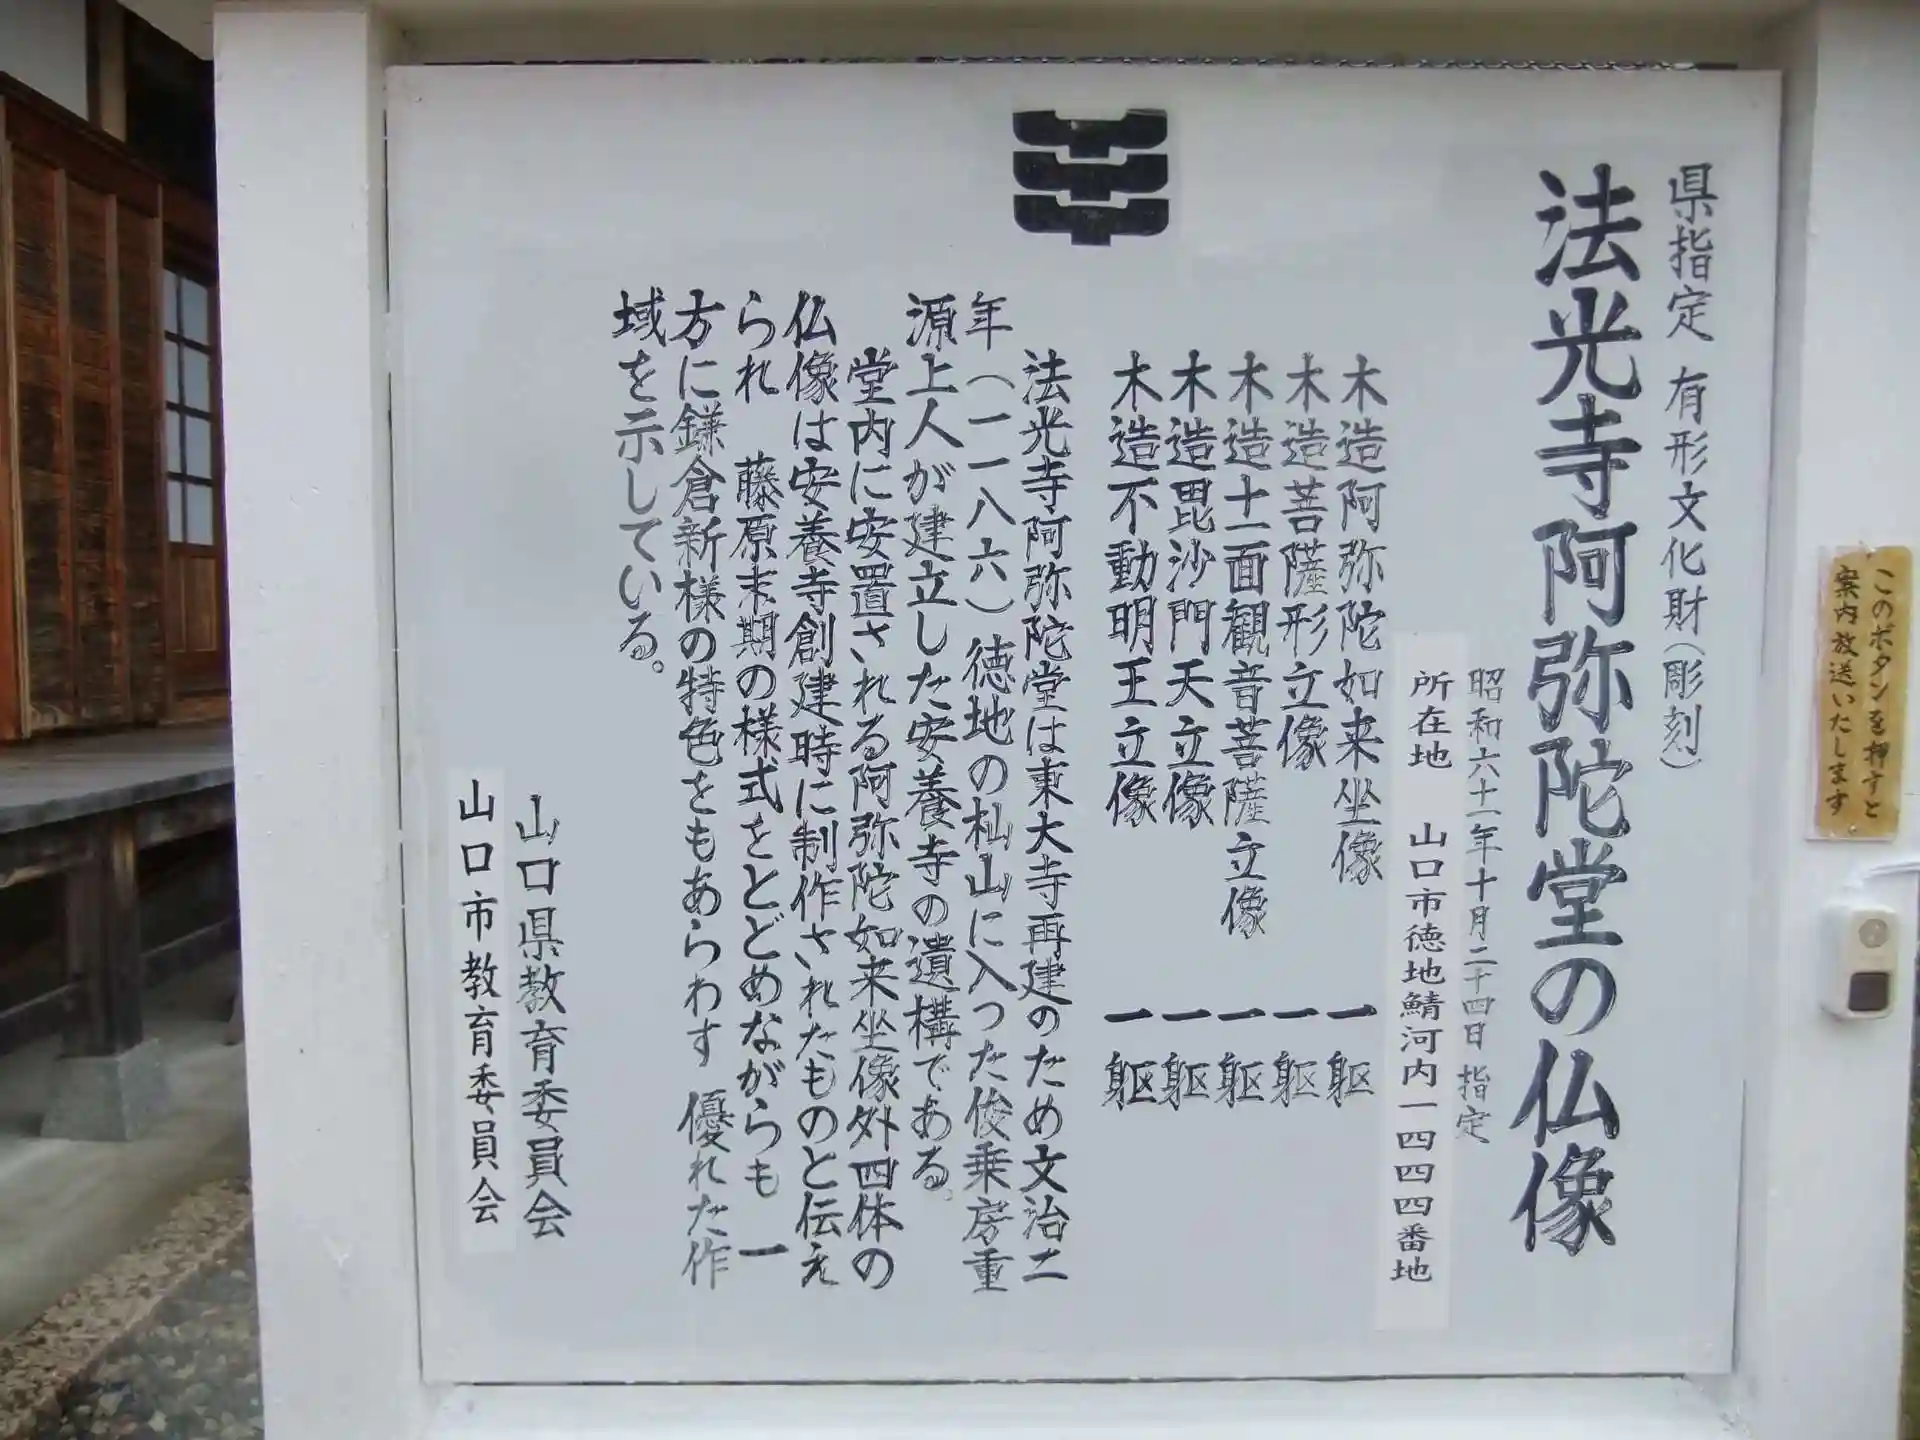 県指定 有形文化財(彫刻)
法光寺阿弥陀堂の仏像
昭和六十一年十月二十四日 指定
所在地 山口市徳地鯖河内一四四四番地
木造阿弥陀如来坐像 一躯
木造菩薩形立像 一躯
木造十一面観音菩薩立像 一躯
木造毘沙門天立像 一躯
木造不動明王立像 一躯
法光寺阿弥陀堂は東大寺再建のため文治二
年(一一八六)徳地の杣山に入った俊乗房重
源上人が建立した安養寺の遺構である。
堂内に安置される阿弥陀如来坐像外四体の
仏像は安養寺創建時に制作されたものと伝え
られ 藤原末期の様式をとどめながらも 一
方に鎌倉新様の特色をもあらわす 優れた作
域を示している。
山口県教育委員会
山口市教育委員会
このボタンを押すと
案内放送いたします